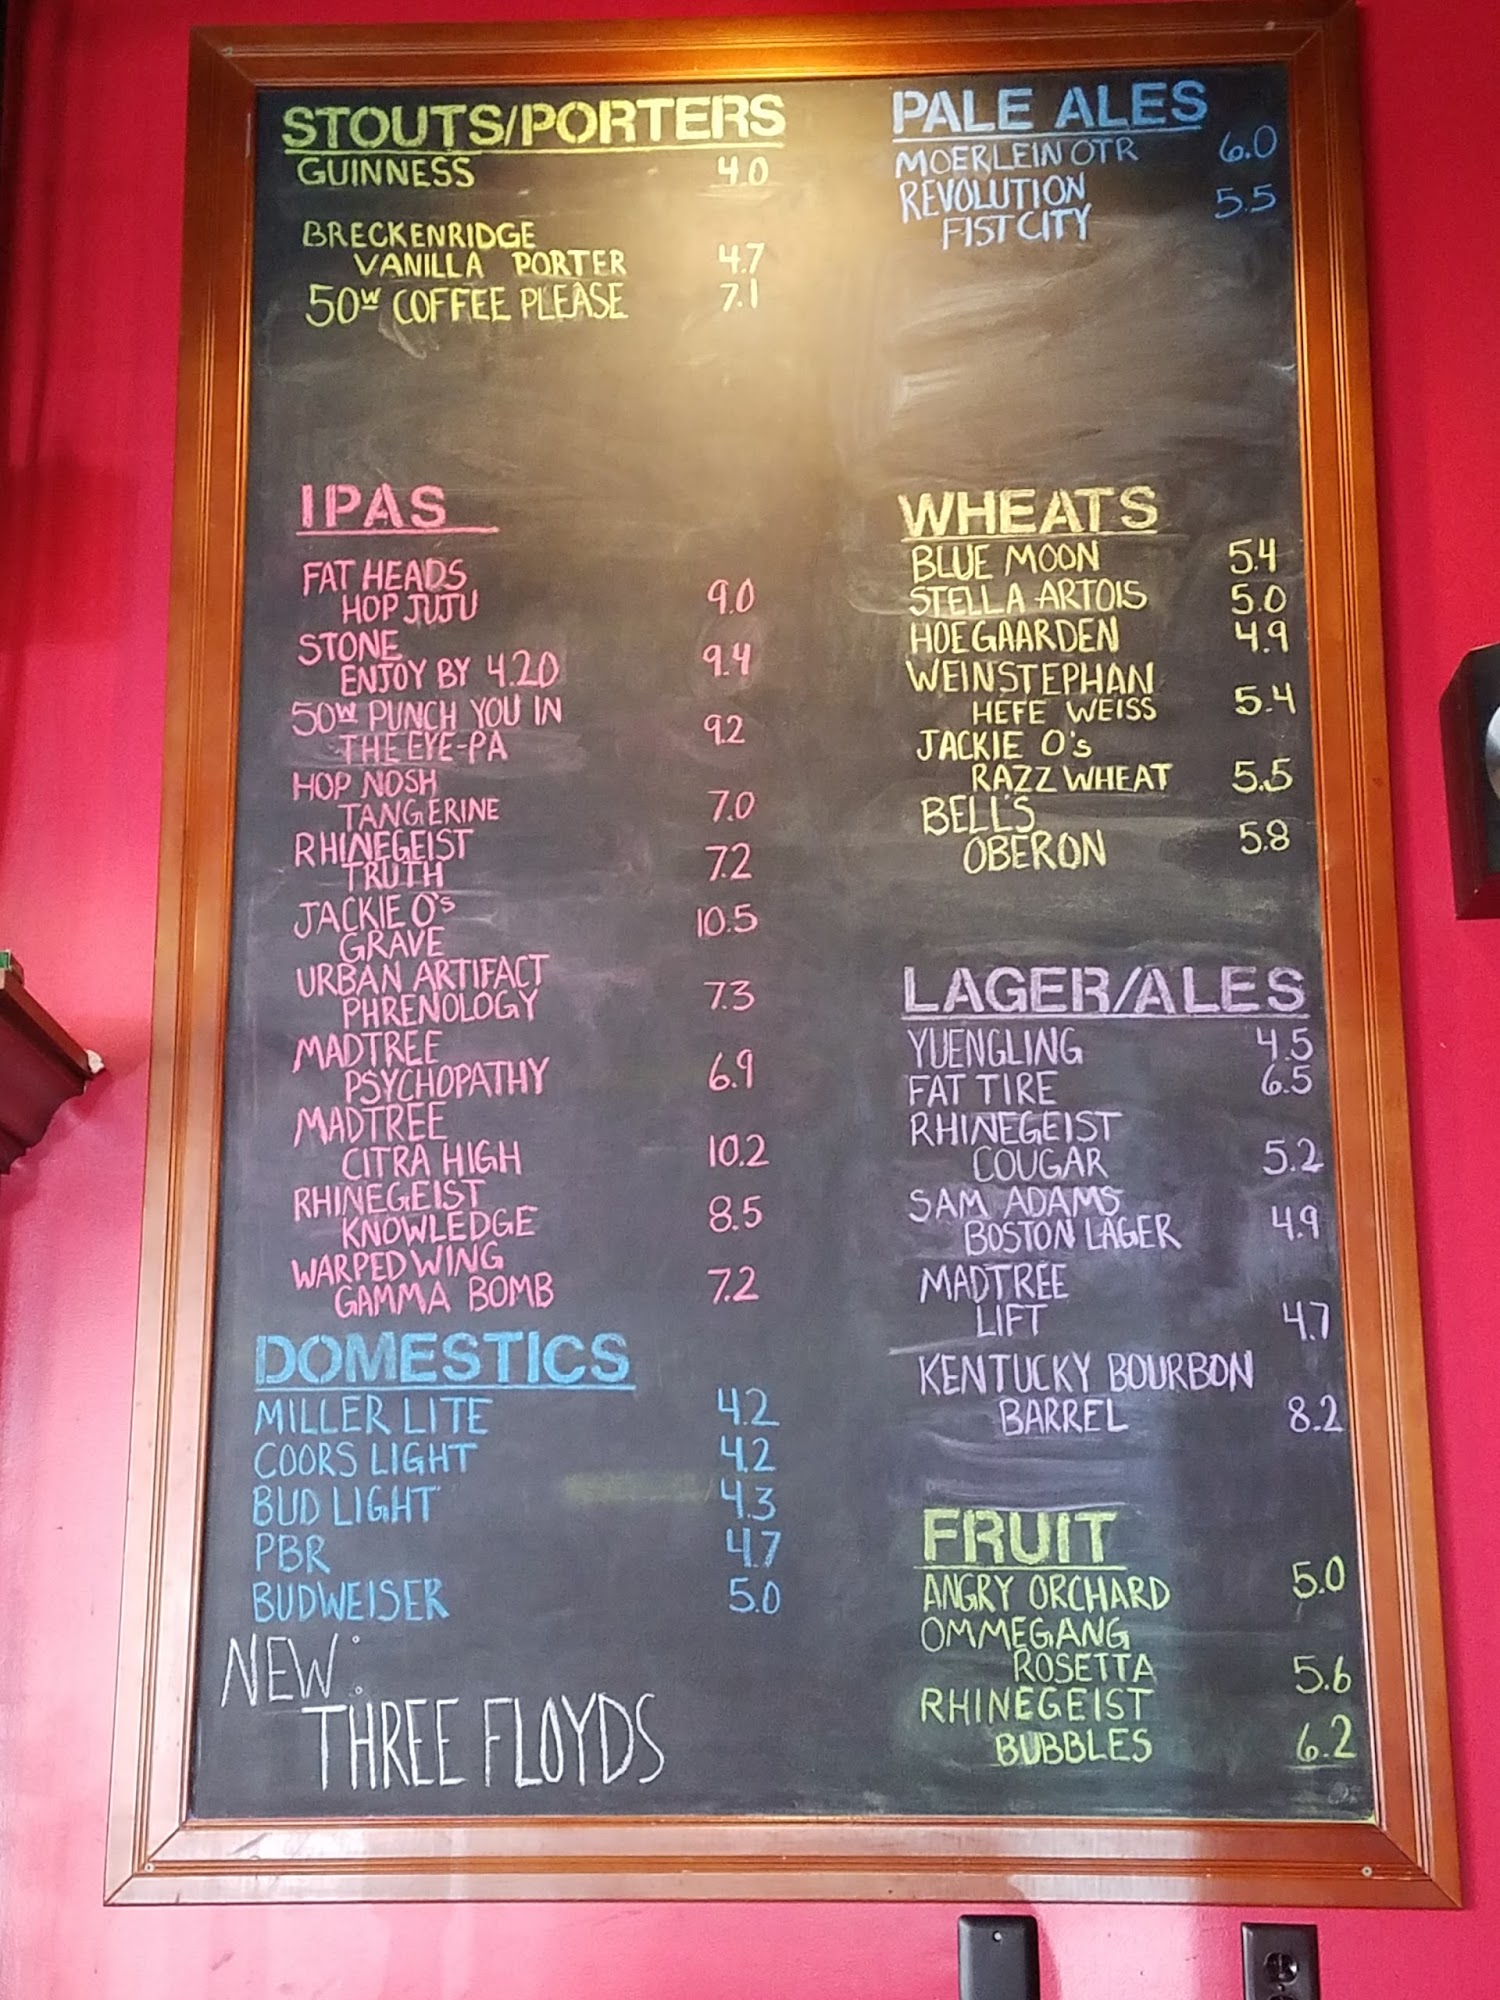 STOUTS/PORTERS
GUINNESS 4.0
BRECKENRIDGE
VANILLA PORTER 4.7
50W COFFEE PLEASE 7.1
IPAS
FAT HEADS
HOP JUJU 9.0
STONE
ENJOY BY 4.20 9.4
50W PUNCH YOU IN
THE EYE-PA 9.2
HOP NOSH
TANGERINE 7.0
RHINEGEIST
TRUTH 7.2
JACKIE O's
GRAVE 10.5
URBAN ARTIFACT
PHRENOLOGY 7.3
MADTREE
PSYCHOPATHY 6.9
MADTREE
CITRA HIGH 10.2
RHINEGEIST
KNOWLEDGE 8.5
WARPED WING
GAMMA BOMB 7.2
DOMESTICS
MILLER LITE 4.2
COORS LIGHT 4.2
BUD LIGHT 4.3
PBR 4.7
BUDWEISER 5.0
NEW:
THREE FLOYDS
PALE ALES
MOERLEIN OTR 6.0
REVOLUTION 5.5
FIST CITY
WHEATS
BLUE MOON 5.4
STELLA ARTOIS 5.0
HOEGAARDEN 4.9
WEINSTEPHAN
HEFE WEISS 5.4
JACKIE O's
RAZZ WHEAT 5.5
BELL'S
OBERON 5.8
LAGER/ALES
YUENGLING 4.5
FAT TIRE 6.5
RHINEGEIST
COUGAR 5.2
SAM ADAMS
BOSTON LAGER 4.9
MADTREE
LIFT 4.7
KENTUCKY BOURBON
BARREL 8.2
FRUIT
ANGRY ORCHARD 5.0
OMMEGANG
ROSETTA 5.6
RHINEGEIST
BUBBLES 6.2